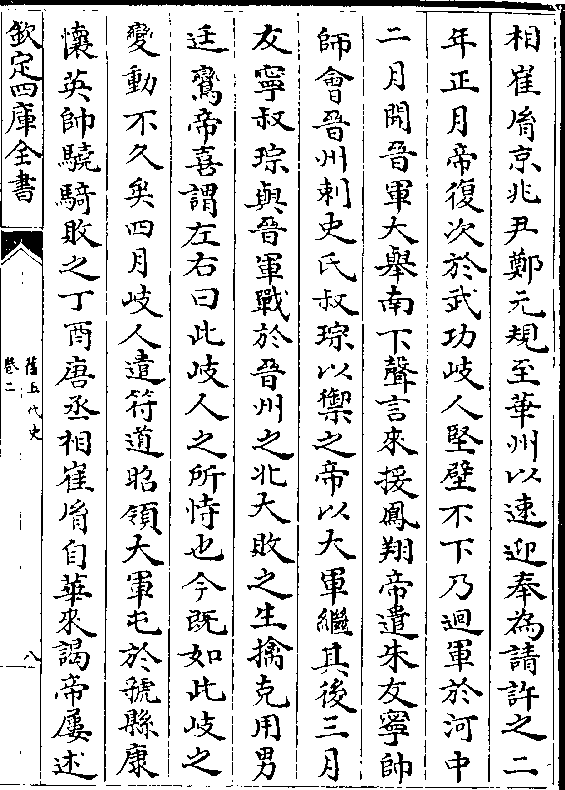 相崔𦙍京兆尹鄭元規至華州以速迎奉為請許之二
年正月帝復次於武功岐人堅壁不下乃迴軍於河中
二月聞晉軍大舉南下聲言來援鳳翔帝遣朱友寧帥
師會晉州刺史氏叔琮以禦之帝以大軍繼其後三月
友寧叔琮與晉軍戰於晉州之北大敗之生擒克用男
廷鸞帝喜謂左右曰此岐人之所恃也今既如此岐之
變動不久矣四月岐人遣符道昭領大軍屯於虢縣康
懷英帥驍騎敗之丁酉唐丞相崔𦙍自華來謁帝屢述
欽定四庫全書
舊五代史
卷二
八